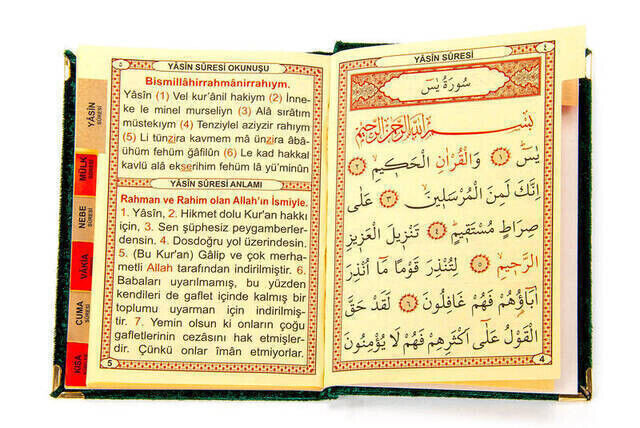 YÂSÎN SÛRESİ
٤
سُورَةُ يٰسٓ
بِسْمِ اللّٰهِ الرَّحْمٰنِ الرَّحِيمِ
يٰسٓ ١ وَالْقُرْاٰنِ الْحَكِيمِ ٢
اِنَّكَ لَمِنَ الْمُرْسَلِينَ ٣ عَلٰى
صِرَاطٍ مُسْتَقِيمٍ ٤ تَنْزِيلَ الْعَزِيزِ
الرَّحِيمِ ٥ لِتُنْذِرَ قَوْمًا مَٓا اُنْذِرَ
اٰبَٓاؤُهُمْ فَهُمْ غَافِلُونَ ٦ لَقَدْ حَقَّ
الْقَوْلُ عَلٰٓى اَكْثَرِهِمْ فَهُمْ لَا يُؤْمِنُونَ
4
٥
YÂSÎN SÛRESİ OKUNUŞU
Bismillâhirrahmânirrahıym.
Yâsîn (1) Vel kur'ânil hakiym (2) İnne-
ke le minel murseliyn (3) Alâ sırâtım
müstekıym (4) Tenziylel aziyzir rahıym
(5) Li tünzira kavmem mâ ünzira âbâ-
ühüm fehüm ğâfilûn (6) Le kad hakkal
kavlü alâ ekserihim fehüm lâ yü'minûn
YÂSÎN SÛRESİ ANLAMI
Rahman ve Rahim olan Allah'ın İsmiyle.
1. Yâsîn, 2. Hikmet dolu Kur'an hakkı
için, 3. Sen şüphesiz peygamberler-
densin. 4. Dosdoğru yol üzerindesin.
5. (Bu Kur'an) Gâlip ve çok merha-
metli Allah tarafından indirilmiştir. 6.
Babaları uyarılmamış, bu yüzden
kendileri de gaflet içinde kalmış bir
toplumu uyarman için indirilmiş-
tir. 7. Yemin olsun ki onların çoğu
gafletlerinin cezasını hak etmişler-
dir. Çünkü onlar îman etmiyorlar.
5
YÂSİN
SÛRESİ
MÜLK
SÛRESİ
NEBE
SÛRESİ
VÂKIA
CUMA
SÛRESİ
KISA